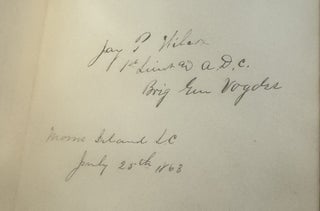 Jay P Wilcox
1st Lieut and A.D.C.
Brig Gen Vogdes
Morris Island SC
July 25th 1863